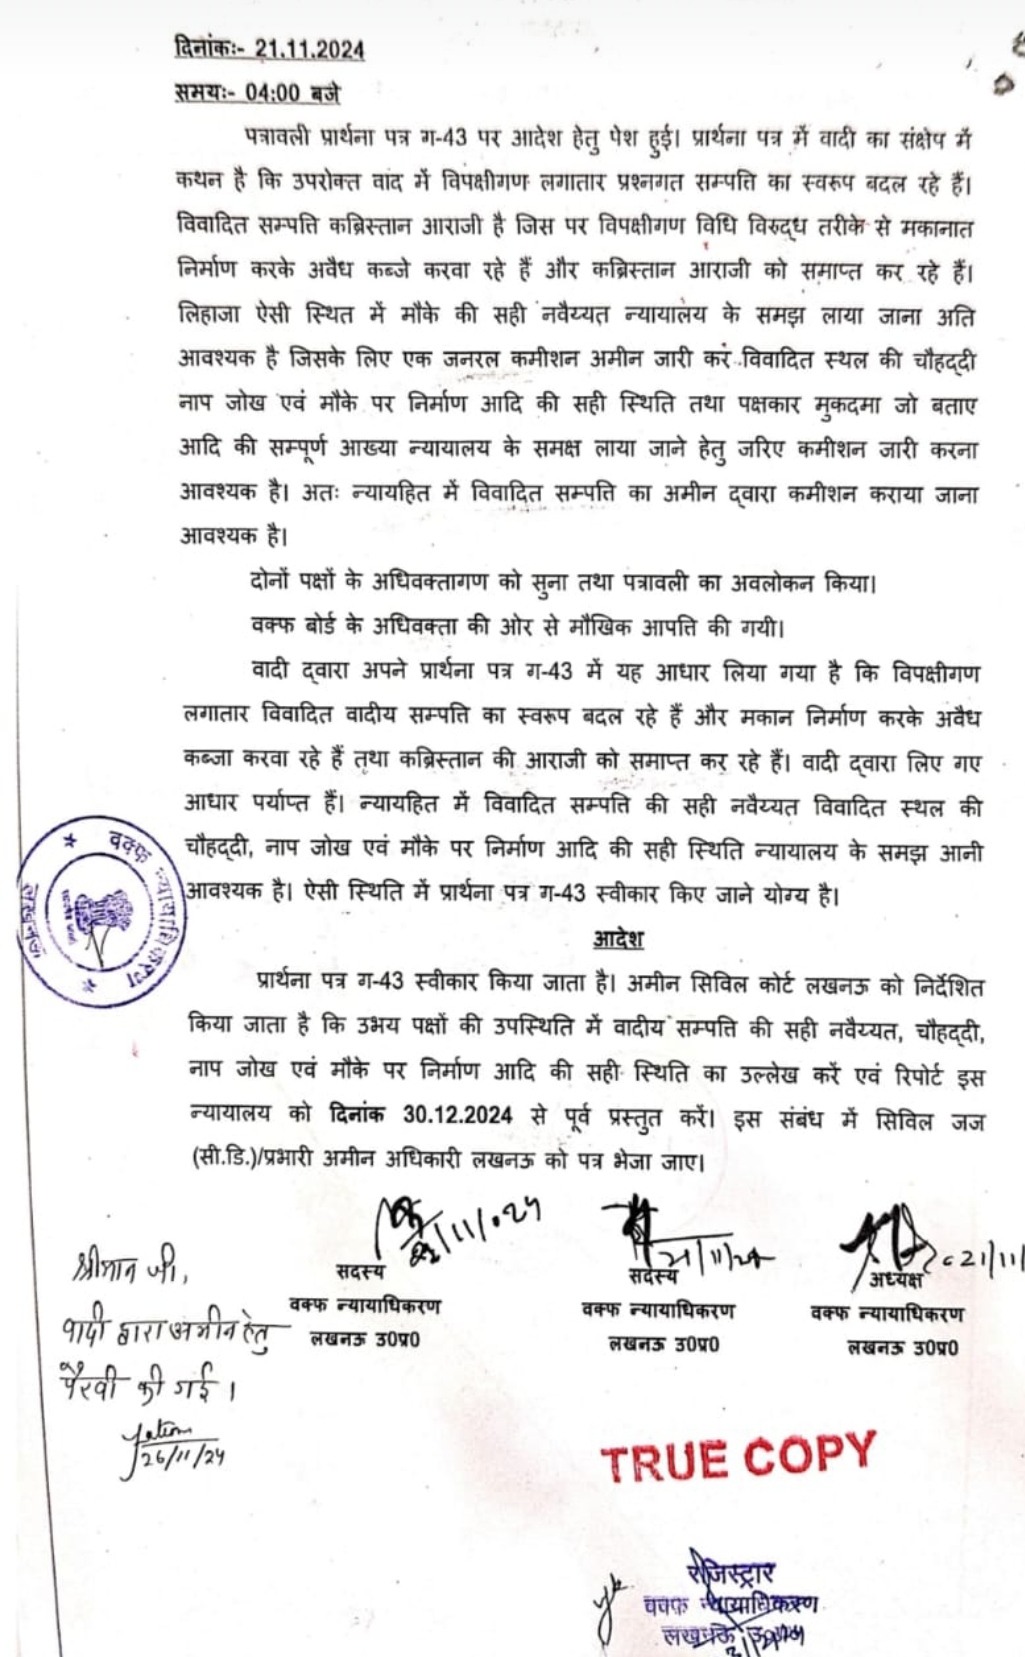 दिनांकः- 21.11.2024
समयः- 04:00 बजे
पत्रावली प्रार्थना पत्र ग-43 पर आदेश हेतु पेश हुई। प्रार्थना पत्र में वादी का संक्षेप में
कथन है कि उपरोक्त वाद में विपक्षीगण लगातार प्रश्नगत सम्पत्ति का स्वरूप बदल रहे हैं।
विवादित सम्पत्ति कब्रिस्तान आराजी है जिस पर विपक्षीगण विधि विरुद्ध तरीके से मकानात
निर्माण करके अवैध कब्जे करवा रहे हैं और कब्रिस्तान आराजी को समाप्त कर रहे हैं।
लिहाजा ऐसी स्थित में मौके की सही नवैय्यत न्यायालय के समझ लाया जाना अति
आवश्यक है जिसके लिए एक जनरल कमीशन अमीन जारी कर विवादित स्थल की चौहद्दी
नाप जोख एवं मौके पर निर्माण आदि की सही स्थिति तथा पक्षकार मुकदमा जो बताए
आदि की सम्पूर्ण आख्या न्यायालय के समक्ष लाया जाने हेतु जरिए कमीशन जारी करना
आवश्यक है। अतः न्यायहित में विवादित सम्पत्ति का अमीन द्वारा कमीशन कराया जाना
आवश्यक है।
दोनों पक्षों के अधिवक्तागण को सुना तथा पत्रावली का अवलोकन किया।
वक्फ बोर्ड के अधिवक्ता की ओर से मौखिक आपत्ति की गयी।
वादी द्वारा अपने प्रार्थना पत्र ग-43 में यह आधार लिया गया है कि विपक्षीगण
लगातार विवादित वादीय सम्पत्ति का स्वरूप बदल रहे हैं और मकान निर्माण करके अवैध
कब्जा करवा रहे हैं तथा कब्रिस्तान की आराजी को समाप्त कर रहे हैं। वादी द्वारा लिए गए
आधार पर्याप्त हैं। न्यायहित में विवादित सम्पत्ति की सही नवैय्यत विवादित स्थल की
चौहद्दी, नाप जोख एवं मौके पर निर्माण आदि की सही स्थिति न्यायालय के समझ आनी
आवश्यक है। ऐसी स्थिति में प्रार्थना पत्र ग-43 स्वीकार किए जाने योग्य है।
वक्फ न्यायाधिकरण
लखनऊ
आदेश
प्रार्थना पत्र ग-43 स्वीकार किया जाता है। अमीन सिविल कोर्ट लखनऊ को निर्देशित
किया जाता है कि उभय पक्षों की उपस्थिति में वादीय सम्पत्ति की सही नवैय्यत, चौहद्दी,
नाप जोख एवं मौके पर निर्माण आदि की सही स्थिति का उल्लेख करें एवं रिपोर्ट इस
न्यायालय को दिनांक 30.12.2024 से पूर्व प्रस्तुत करें। इस संबंध में सिविल जज
(सी.डि.)/प्रभारी अमीन अधिकारी लखनऊ को पत्र भेजा जाए।
21/11/24 21/11
सदस्य सदस्य अध्यक्ष
वक्फ न्यायाधिकरण वक्फ न्यायाधिकरण वक्फ न्यायाधिकरण
लखनऊ उ0प्र0 लखनऊ उ0प्र0 लखनऊ उ0प्र0
श्रीमान जी,
वादी द्वारा अमीन हेतु
पैरवी की गई।
26/11/24
TRUE COPY
रजिस्ट्रार
वक्फ न्यायाधिकरण
लखनऊ